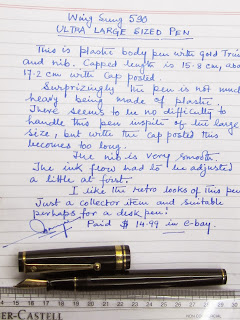 Wing Sung 590
ULTRA LARGE SIZED PEN
This is plastic body pen with gold Trim
and nib. Capped length is 15.8 cm, abo
17.2 cm with cap posted.
Surprizingly the pen is not much
heavy being made of plastic.
There seems to be no difficulty to
handle this pen inspite of the large
size, but with the cap posted this
becomes too long.
The nib is very smooth.
The ink flow had to be adjusted
a little at first.
I like the retro looks of this pen
Just a collector item and suitable
perhaps for a desk pen!
Paid $ 14.99 in e-bay.
ER-CASTELL